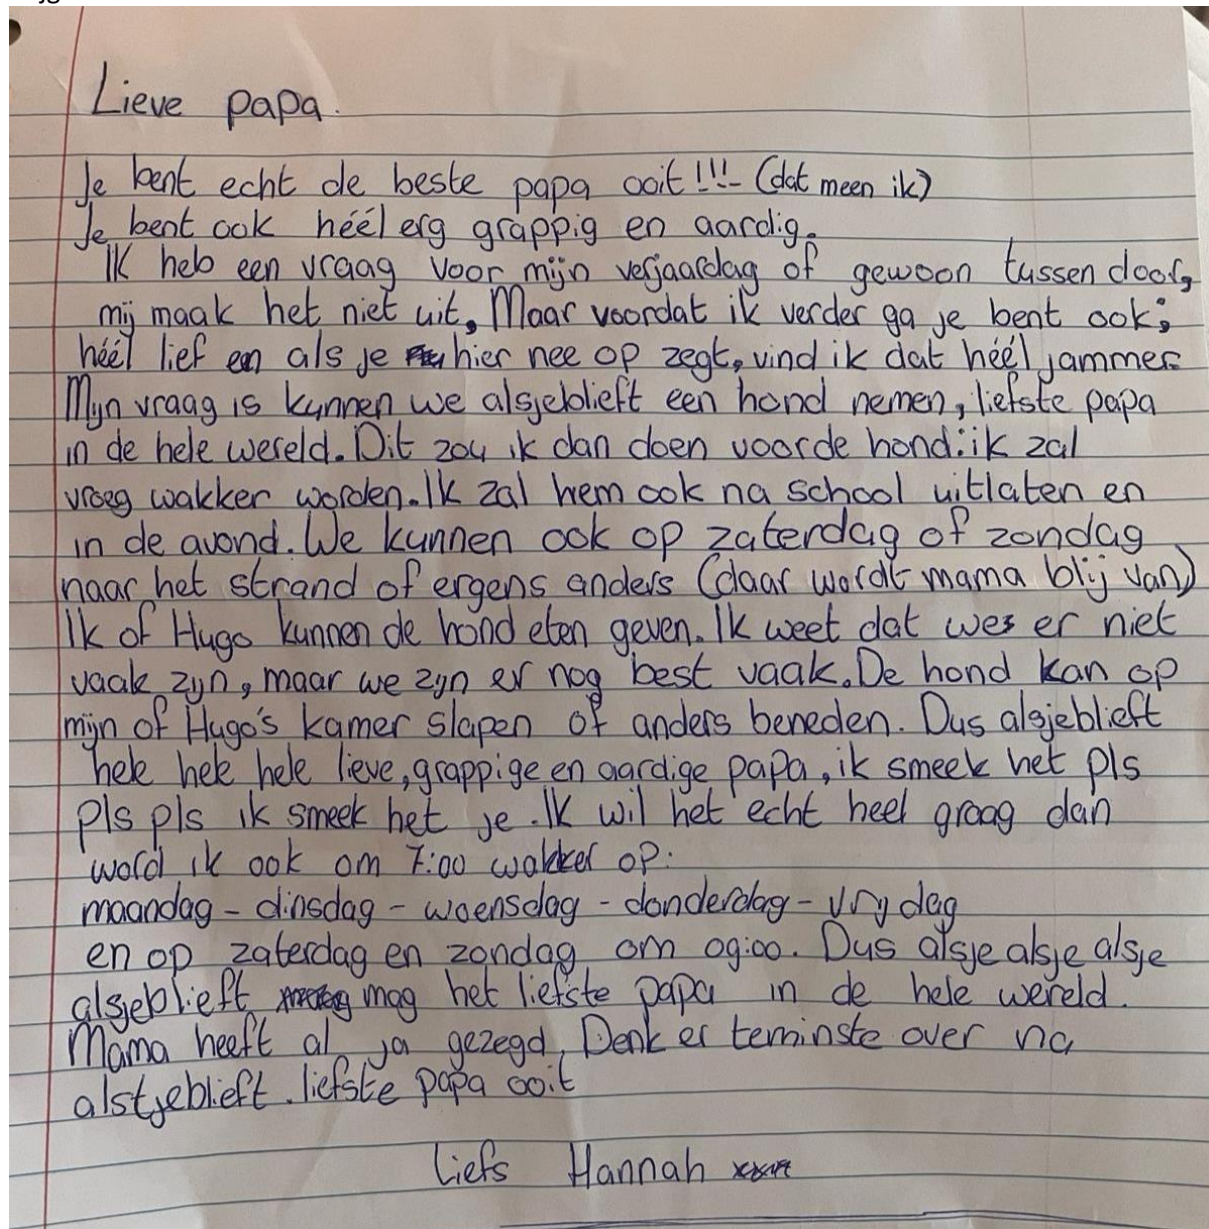 Lieve papa.
Je bent echt de beste papa ooit!!! (dat meen ik)
Je bent ook héél erg grappig en aardig.
Ik heb een vraag voor mijn verjaardag of gewoon tussen door,
mij maak het niet uit, Maar voordat ik verder ga je bent ook;
héél lief en als je hier nee op zegt, vind ik dat héél jammer.
Mijn vraag is kunnen we alsjeblieft een hond nemen, liefste papa
in de hele wereld. Dit zou ik dan doen voor de hond: ik zal
vroeg wakker worden. Ik zal hem ook na school uitlaten en
in de avond. We kunnen ook op zaterdag of zondag
naar het strand of ergens anders (daar wordt mama blij van)
Ik of Hugo kunnen de hond eten geven. Ik weet dat we er niet
vaak zijn, maar we zijn er nog best vaak. De hond kan op
mijn of Hugo's kamer slapen of anders beneden. Dus alsjeblieft
hele hele hele lieve, grappige en aardige papa, ik smeek het pls
pls pls ik smeek het je. Ik wil het echt heel graag dan
word ik ook om 7:00 wakker op:
maandag - dinsdag - woensdag - donderdag - vrijdag
en op zaterdag en zondag om 09:00. Dus alsje alsje alsje
alsjeblieft mag het liefste papa in de hele wereld.
Mama heeft al ja gezegd, Denk er teminste over na
alstjeblieft. liefste papa ooit
Liefs Hannah